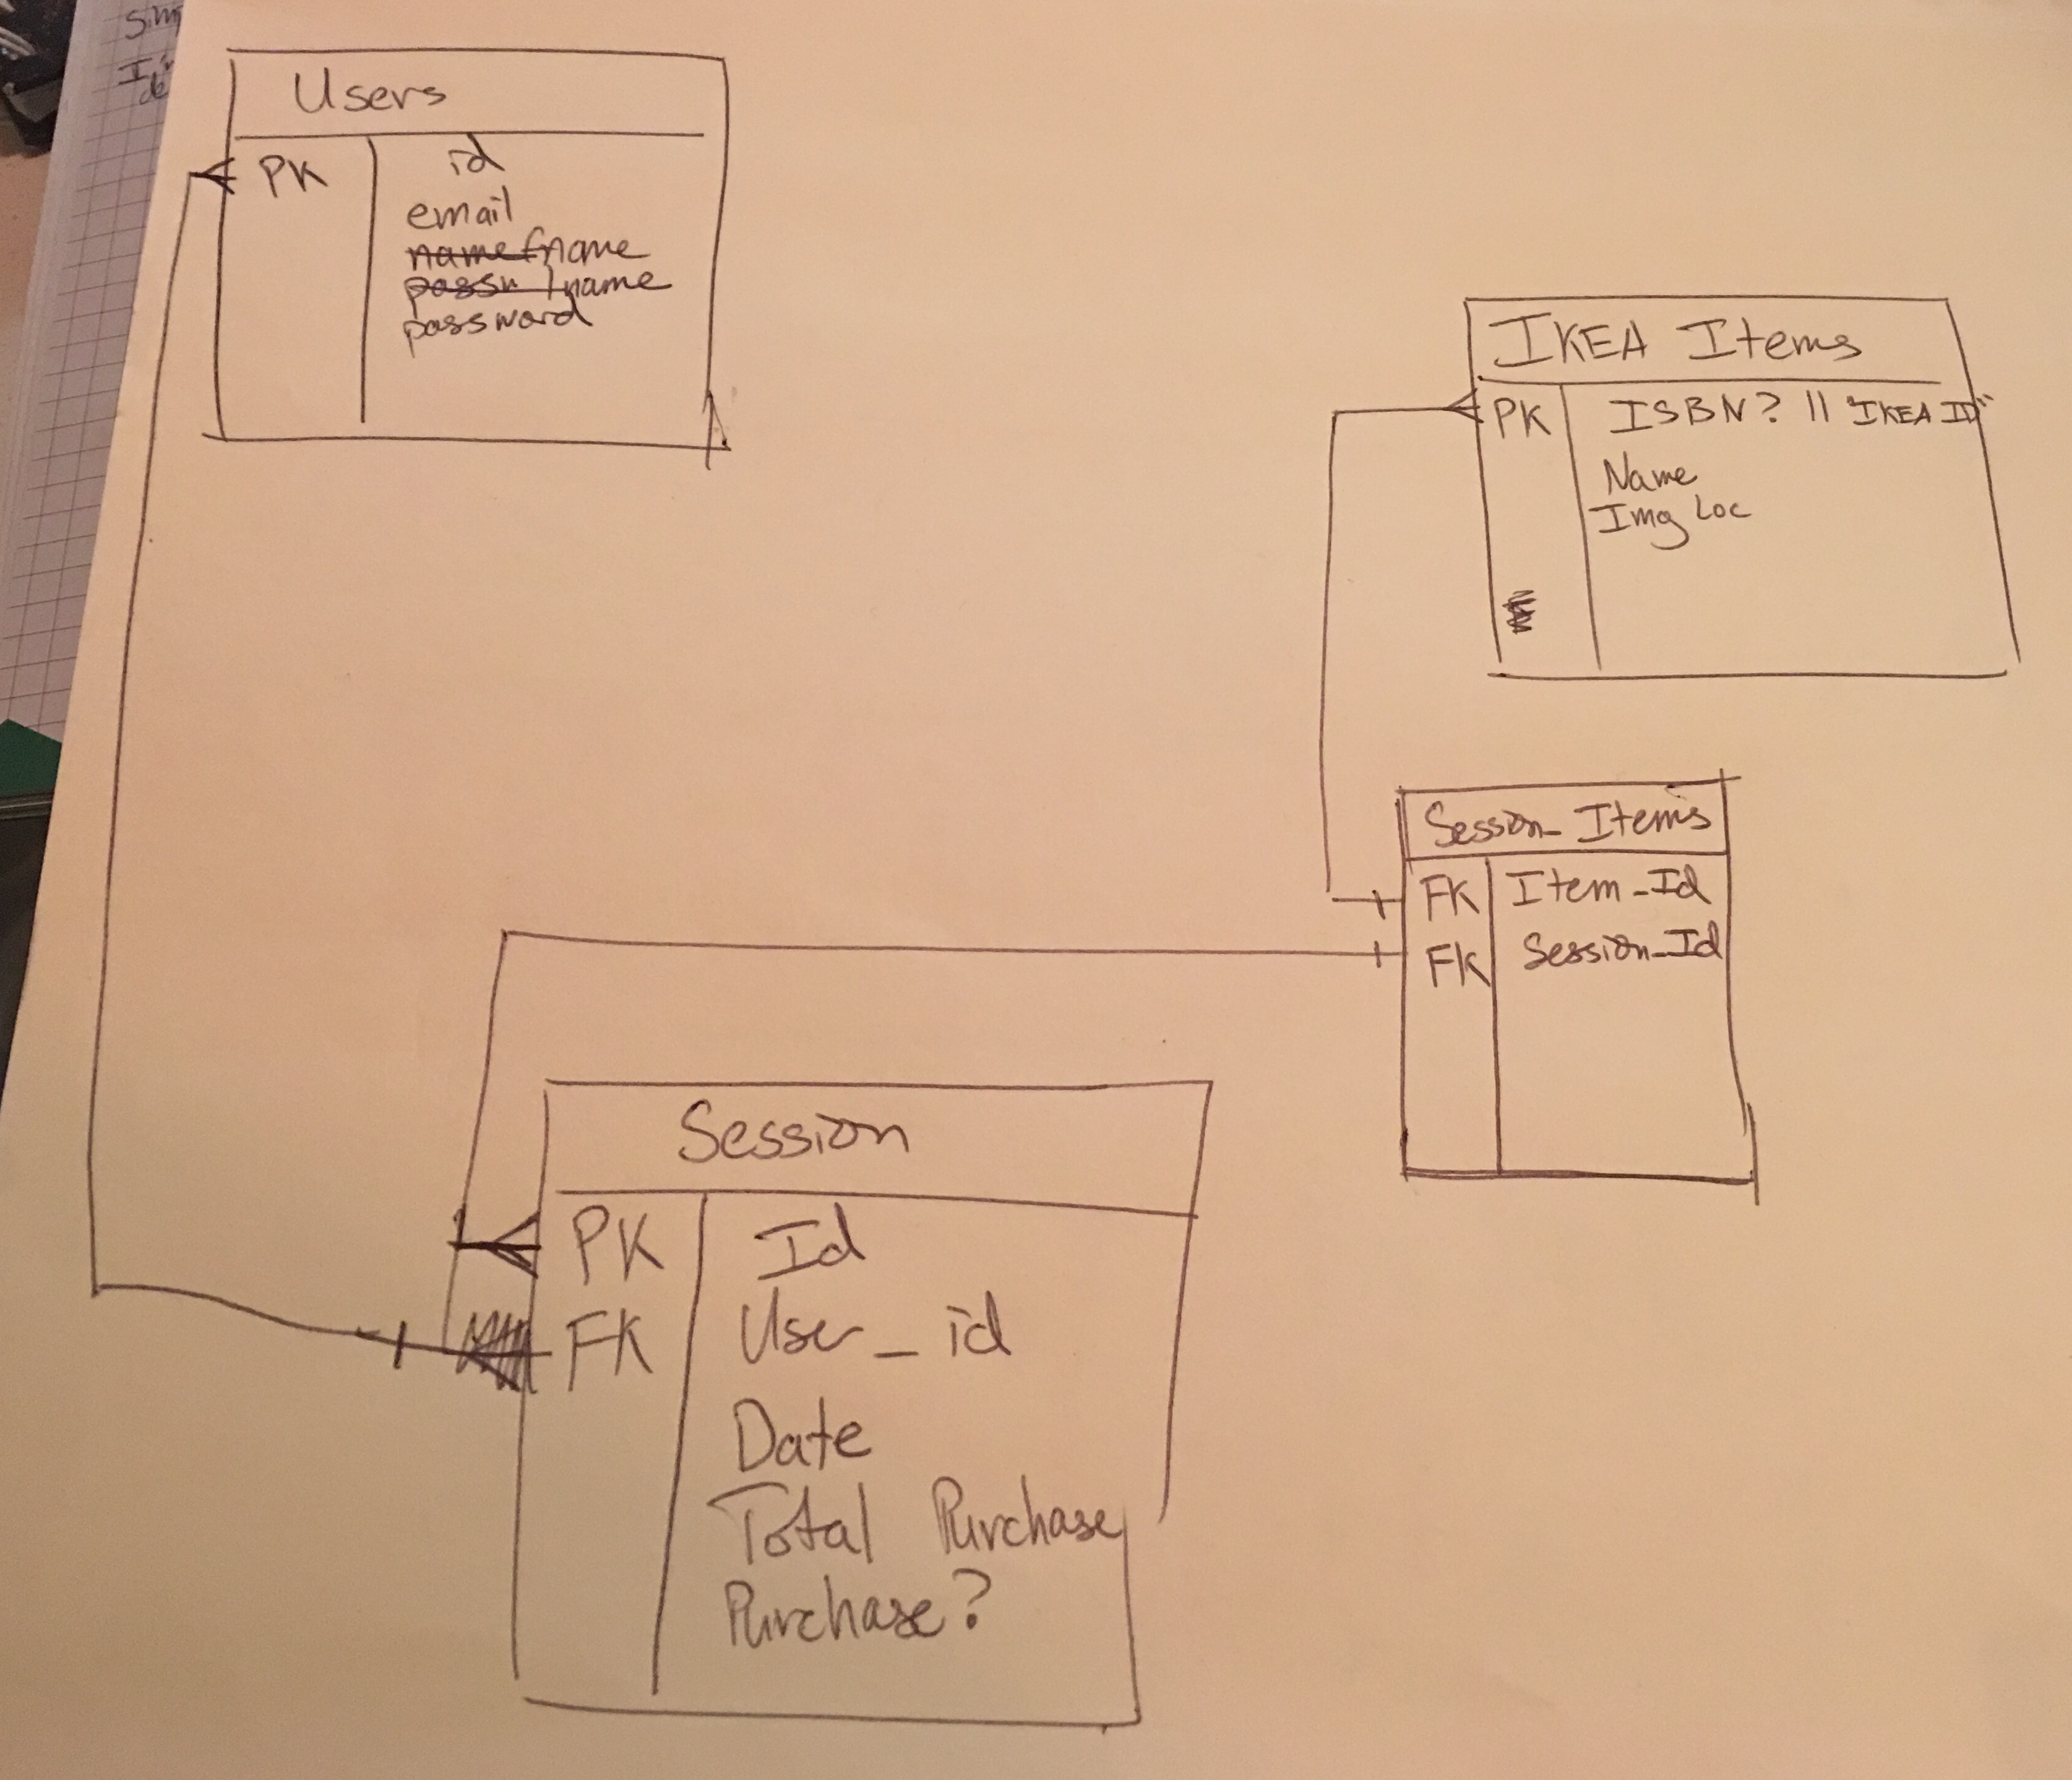 Users
PK id
email
name fname
passw lname
password
IKEA Items
PK ISBN? || "IKEA ID"
Name
Img Loc
Session_Items
FK Item_Id
FK Session_Id
Session
PK Id
FK User_id
Date
Total Purchase
Purchase?